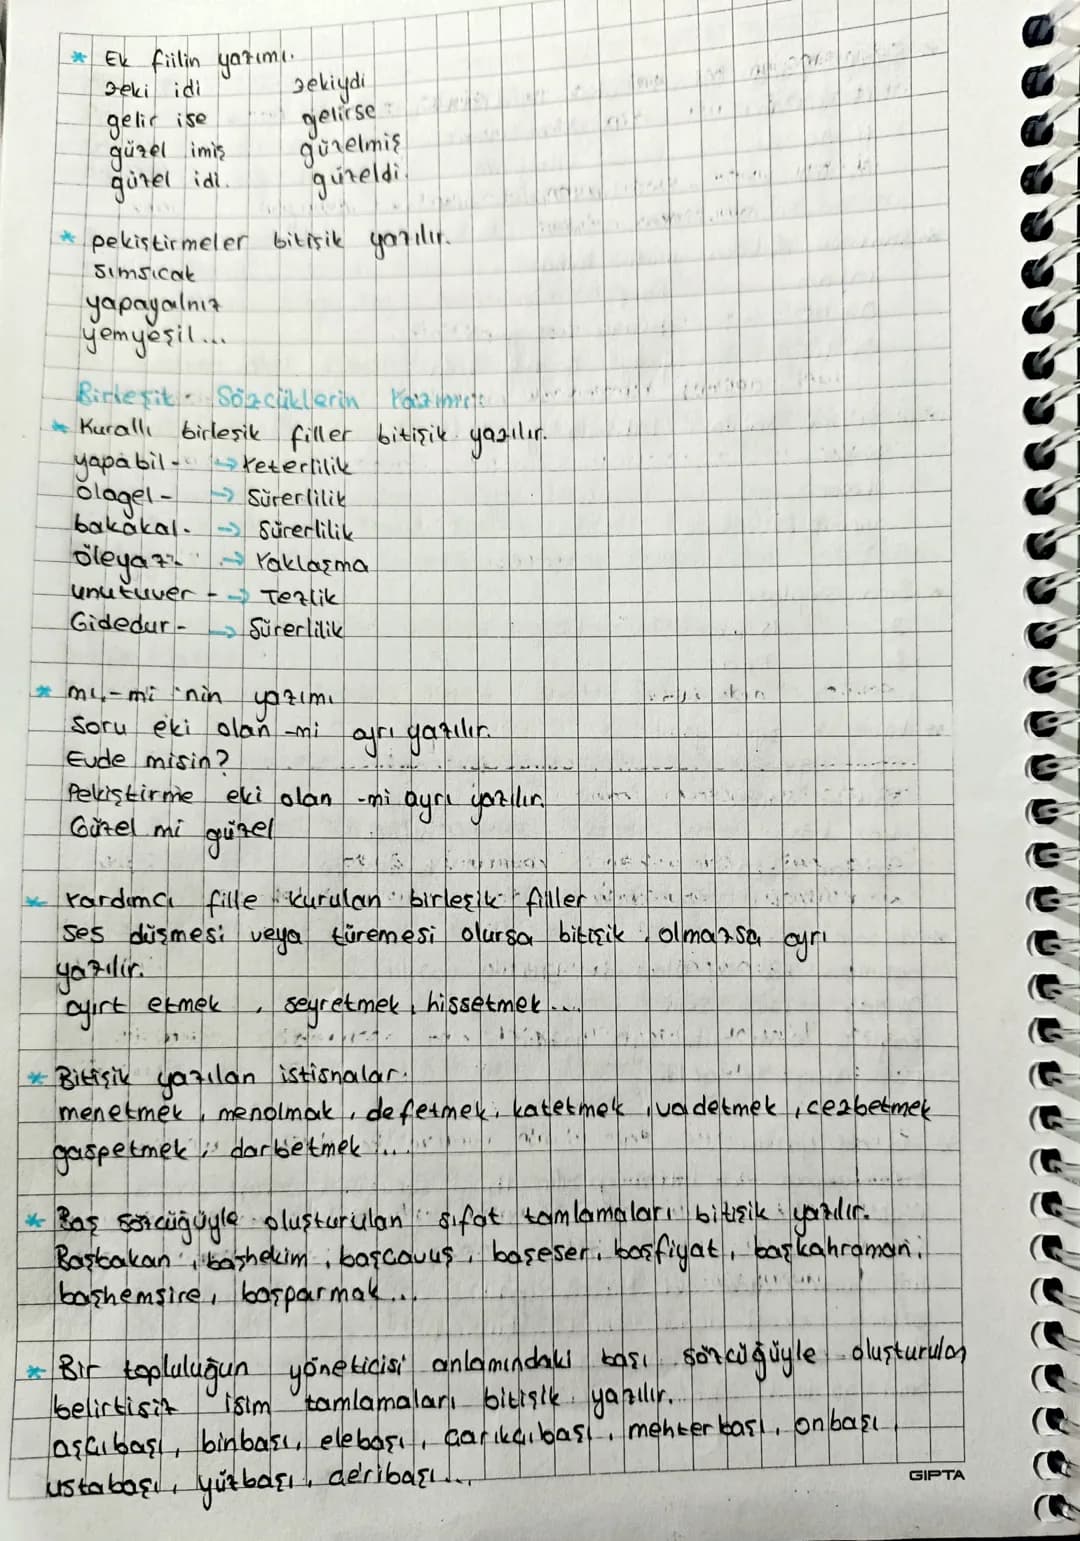 * Ek fiilin yazımı.
zeki idi zekiydi
gelir ise gelirse
güzel imiş güzelmiş
güzel idi. güzeldi.
* pekiştirmeler bitişik yazılır.
sımsıcak
yapayalnız
yemyeşil...
Birleşik Sözcüklerin Yazımı:
* Kurallı birleşik filler bitişik yazılır.
yapabil- → Yeterlilik
Olagel- → Sürerlilik
bakakal- → Sürerlilik
öleyaz- → Yaklaşma
unutuver - → Tezlik
Gidedur- → Sürerlilik
* mı,-mi 'nin yazımı
Soru eki olan -mi ayrı yazılır.
Evde misin?
Pekiştirme eki olan -mi ayrı yazılır.
Güzel mi güzel
* Yardımcı fille kurulan birleşik filler
ses düşmesi veya türemesi olursa bitişik, olmazsa ayrı
yazılır.
ayırt etmek, seyretmek, hissetmek....
* Bitişik yazılan istisnalar.
menetmek, menolmak, defetmek, katetmek, vadetmek, cezbetmek
gaspetmek, darbetmek ...
* Baş sözcüğüyle oluşturulan sıfat tamlamaları bitişik yazılır.
Başbakan, başhekim, başçavuş, başeser, başfiyat, başkahraman,
başhemşire, başparmak...
* Bir topluluğun yöneticisi anlamındaki başı sözcüğüyle oluşturulan
belirtisiz isim tamlamaları bitişik yazılır.
aşçıbaşı, binbaşı, elebaşı, çarıkçıbaşı, mehterbaşı, onbaşı,
ustabaşı, yüzbaşı, çeribaşı...
GIPTA